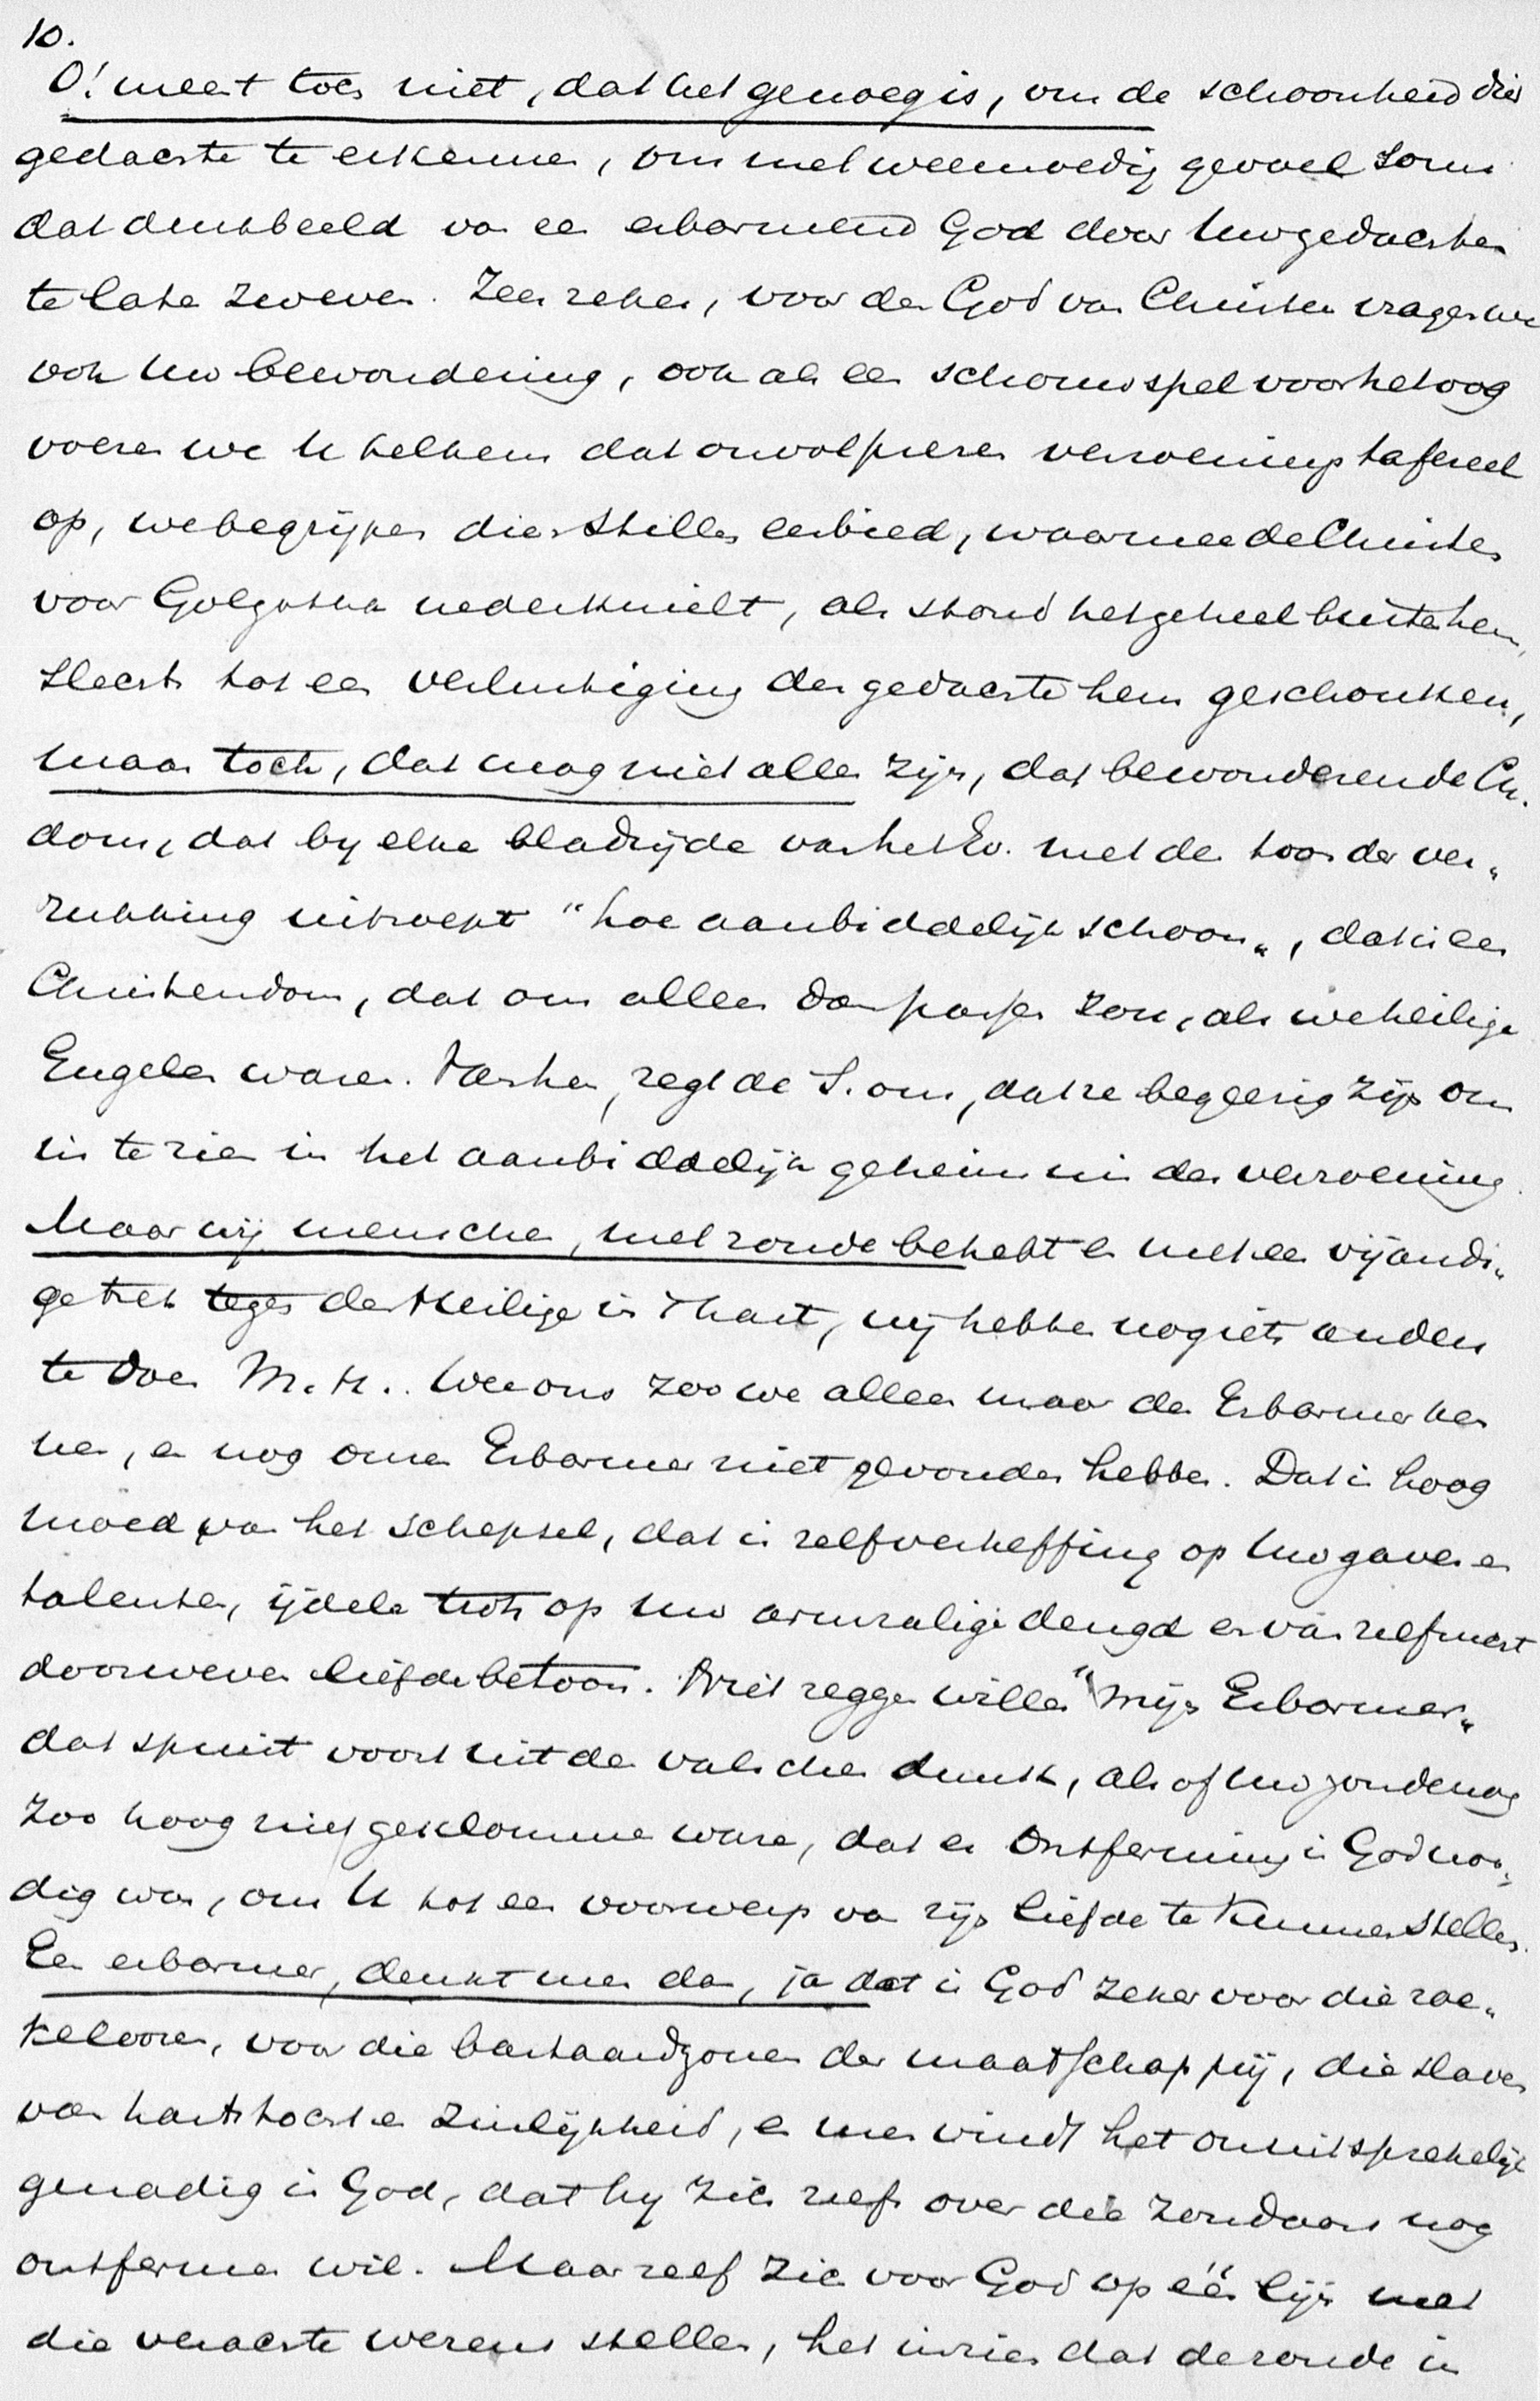 10.
O! meent toch niet, dat het genoeg is, om de schoonheid dier
gedachte te erkennen, om met weemoedig gevoel soms
dat denkbeeld van een erbarmend God door Uw gedachten
te laten zweven. Zeer zeker, voor den God van Christen vragen we
ook Uw bewondering, ook als een schouwspel voor het oog
voeren we U telkens dat onvolprezen verzoenings tafereel
op, we begrijpen dien stillen eerbied, waarmee de Christen
voor Golgotha nederknielt, als stond het geheel buiten hem,
slechts tot een verlustiging der gedachte hem geschonken,
maar toch, dat mag niet alles zijn, dat bewonderende Ch.
dom, dat by elke bladzijde van het Ev. met den toon der ver„
rukking uitroept "hoe aanbiddelijk schoon„, dat is een
Christendom, dat ons alleen dan passen zou, als we heilige
Engelen waren. Van hen, zegt de S. ons, dat ze begeerig zijn om
in te zien in het aanbiddelijk geheimnis der verzoening.
Maar wij menschen, met zonde behebt en met een vijandi„
ge trek tegen den Heilige in 't hart, wij hebben nog iets anders
te doen M. H.. Wee ons zoo we alleen maar den Erbarmer ken
nen, en nog onzen Erbarmer niet gevonden hebben. Dat is hoog
moed van het schepsel, dat is zelfverheffing op Uw gaven en
talenten, ijdele trots op Uw armzalige deugd en van zelfzucht
doorweven liefdebetoon. Niet zeggen willen "Mijn Erbarmer„
dat spruit voort uit den valschen dunk, als of Uw zonde nog
zoo hoog niet geklommen ware, dat er Ontferming in God noo„
dig was, om U tot een voorwerp van zijn liefde te kunnen stellen.
Een erbarmer, denkt men dan, ja dat is God zeker voor die roe„
keloozen, voor die bastaardzonen der maatschappij, die slaven
van hartstocht en zinlijkheid, en men vindt het onuitsprekelijk
genadig in God, dat hy zich zelfs over die zondaars nog
ontfermen wil. Maar zelf zich voor God op één lijn met
die verachte wezens stellen, het inzien dat de zonde in